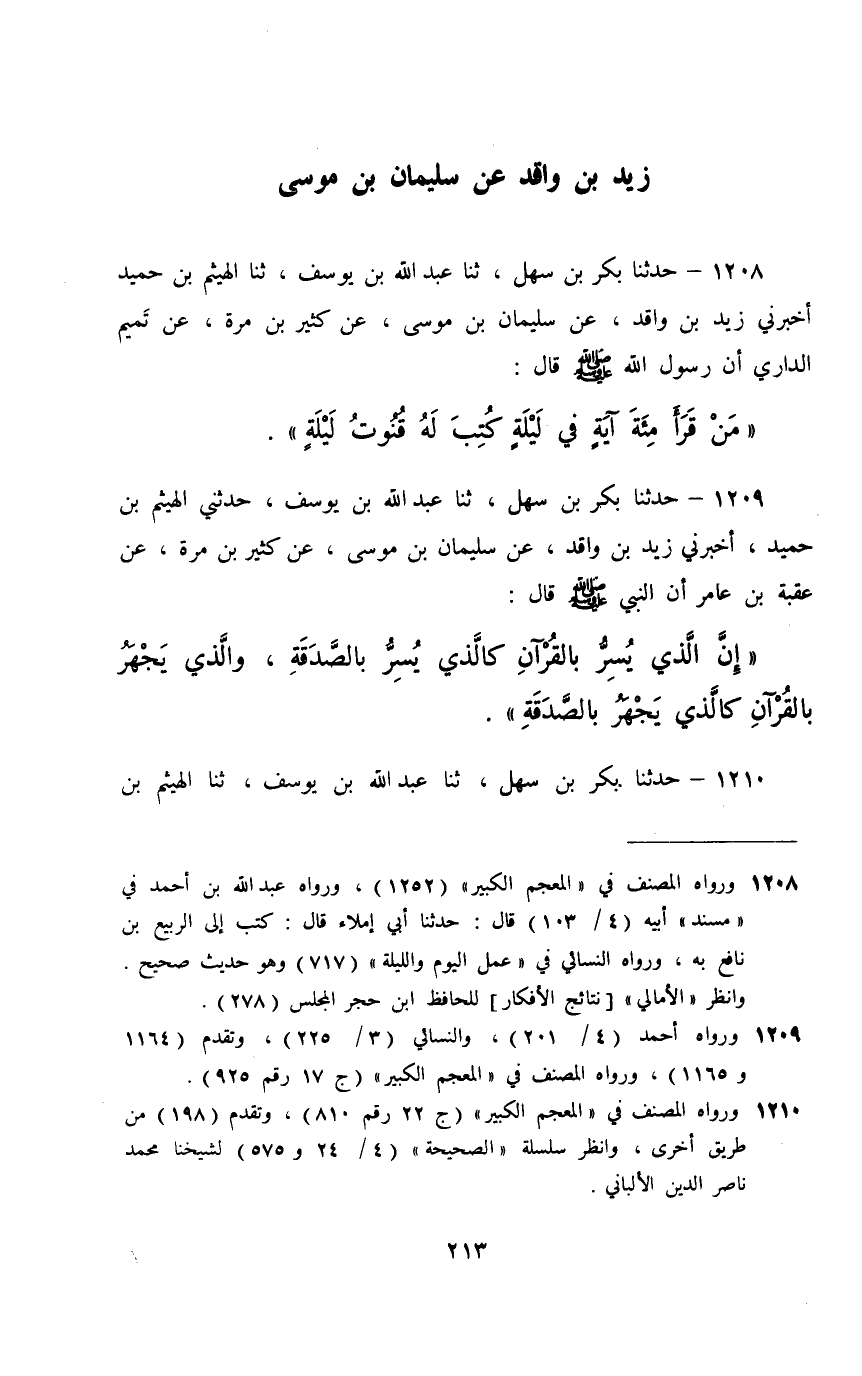 زيد بن واقد عن سليمان بن موسى
١٢٠٨ – حدثنا بكر بن سهل ، ثنا عبد الله بن يوسف ، ثنا الهيثم بن حميد
أخبرني زيد بن واقد ، عن سليمان بن موسى ، عن كثير بن مرة ، عن تَميم
الداري أن رسول الله ﷺ قال :
« مَنْ قَرَأَ مِئَةَ آيَةٍ في لَيْلَةٍ كُتِبَ لَهُ قُنُوتُ لَيْلَةٍ » .
١٢٠٩ – حدثنا بكر بن سهل ، ثنا عبد الله بن يوسف ، حدثني الهيثم بن
حميد ، أخبرني زيد بن واقد ، عن سليمان بن موسى ، عن كثير بن مرة ، عن
عقبة بن عامر أن النبي ﷺ قال :
« إِنَّ الَّذي يُسِرُّ بالقُرْآنِ كالَّذي يُسِرُّ بالصَّدَقَةِ ، والَّذي يَجْهَرُ
بالقُرْآنِ كالَّذي يَجْهَرُ بالصَّدَقَةِ » .
١٢١٠ – حدثنا بكر بن سهل ، ثنا عبد الله بن يوسف ، ثنا الهيثم بن
١٢٠٨ ورواه المصنف في « المعجم الكبير » (١٢٥٢) ، ورواه عبد الله بن أحمد في
« مسند » أبيه (٤ / ١٠٣) قال : حدثنا أبي إملاء قال : كتب إلى الربيع بن
نافع به ، ورواه النسائي في « عمل اليوم والليلة » (٧١٧) وهو حديث صحيح .
وانظر « الأمالي » [ نتائج الأفكار ] للحافظ ابن حجر المجلس (٢٧٨) .
١٢٠٩ ورواه أحمد (٤ / ٢٠١) ، والنسائي (٣ / ٢٢٥) ، وتقدم (١١٦٤
و ١١٦٥) ، ورواه المصنف في « المعجم الكبير » (ج ١٧ رقم ٩٢٥) .
١٢١٠ ورواه المصنف في « المعجم الكبير » (ج ٢٢ رقم ٨١٠) ، وتقدم (١٩٨) من
طريق أخرى ، وانظر سلسلة « الصحيحة » (٤ / ٢٤ و ٥٧٥) لشيخنا محمد
ناصر الدين الألباني .
٢١٣